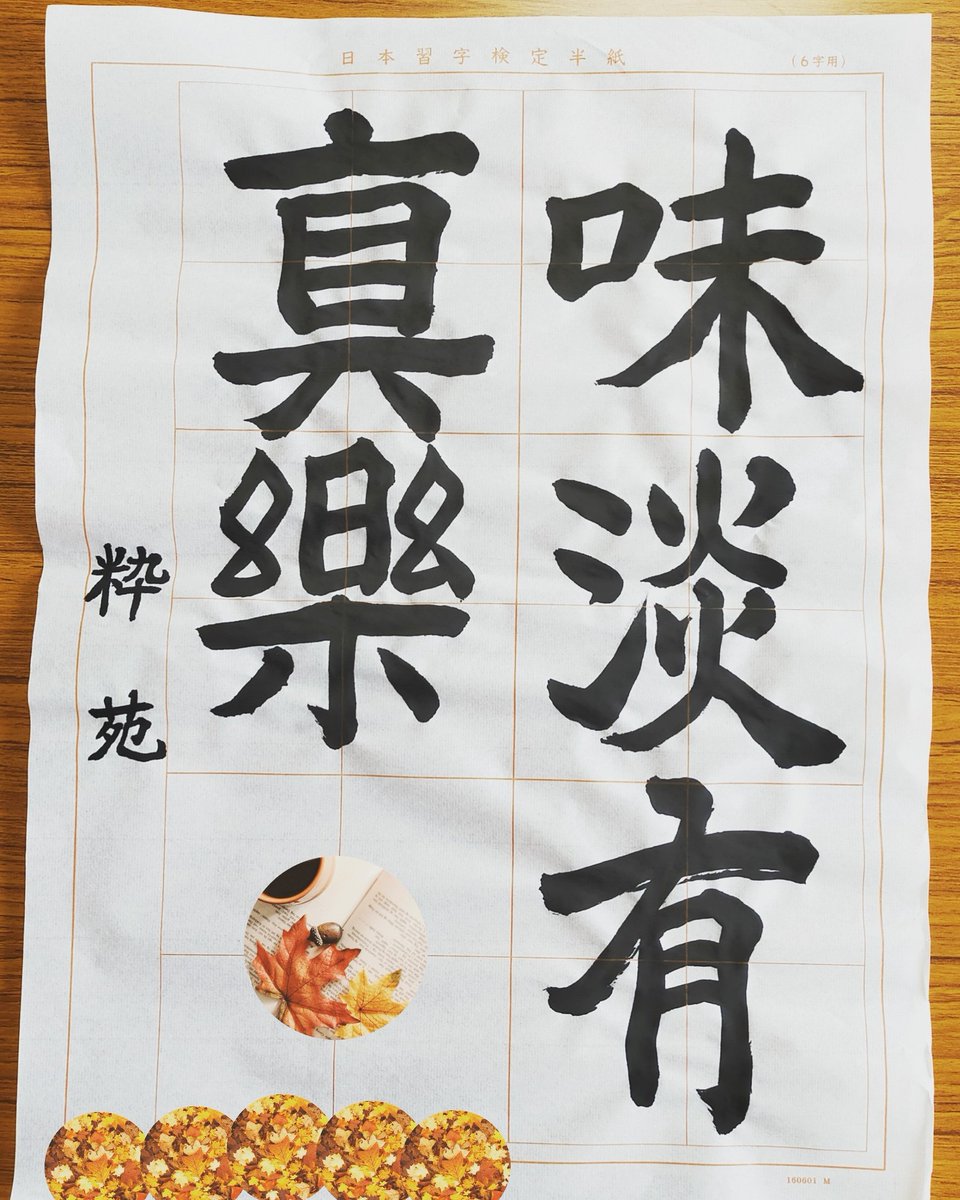 日本習字検定半紙
(6字用)
味淡有
真樂
粋苑
160601 M